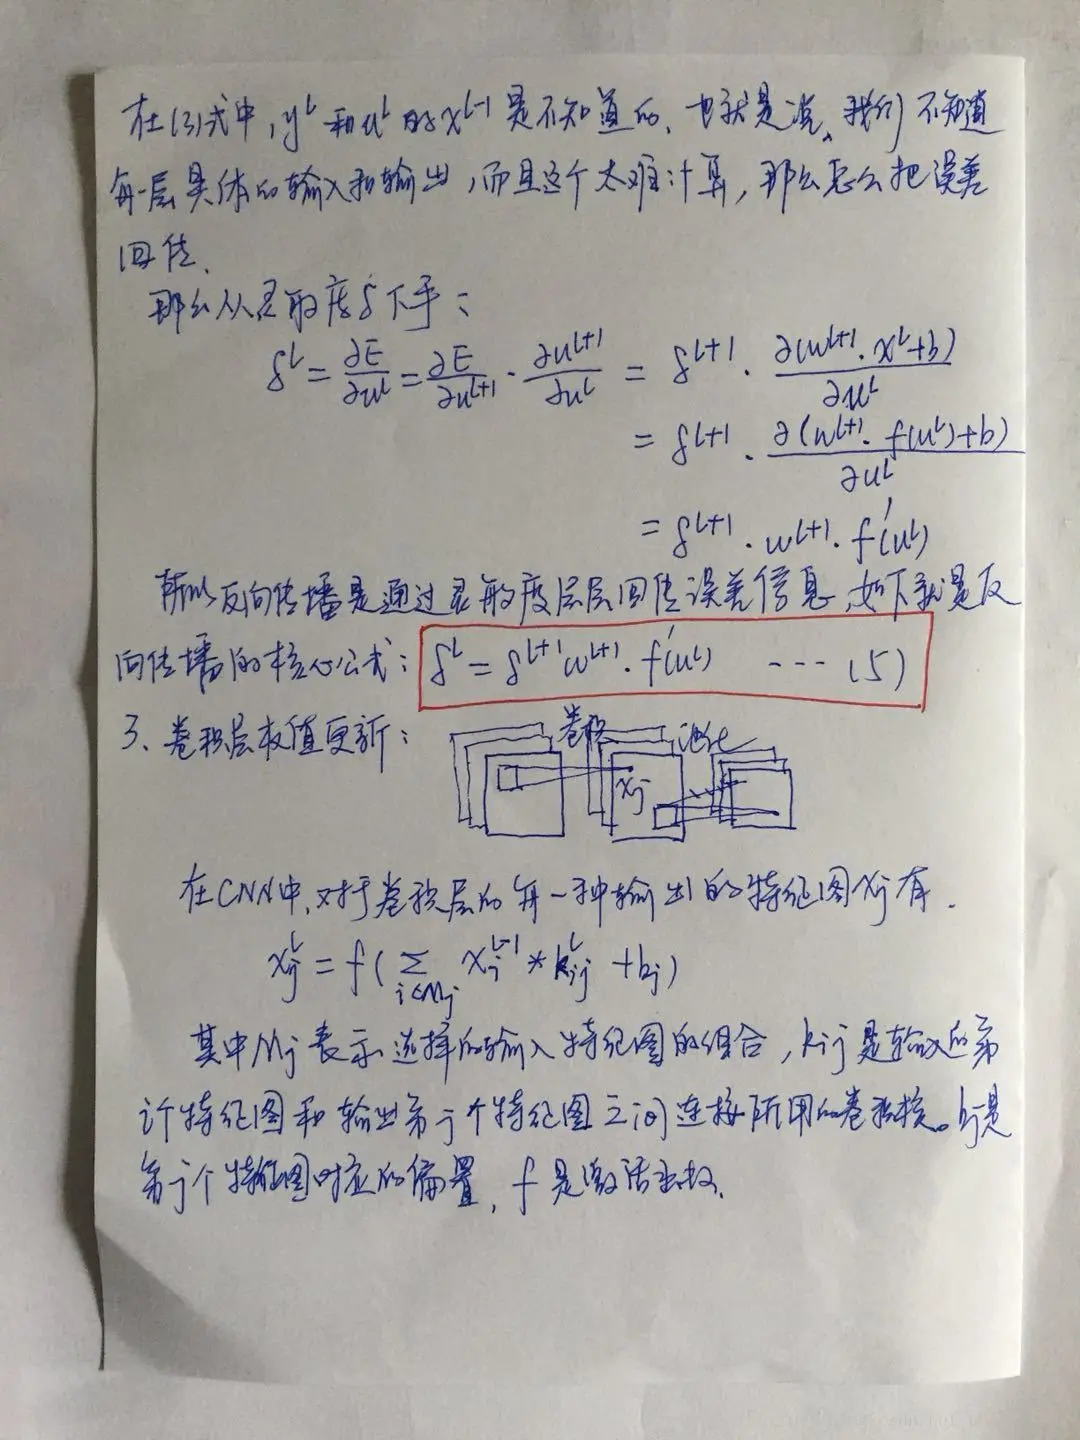 在(3)式中,y^L 和u^L 的x^{L-1} 是不知道的、也就是说、我们不知道
每一层具体的输入和输出,而且这个太难计算,那么怎么把误差
回传、
那么从灵敏度δ下手:
δ^L = ∂E/∂u^L = ∂E/∂u^{L+1} · ∂u^{L+1}/∂u^L = δ^{L+1} · ∂(w^{L+1}·x^L+b)/∂u^L
= δ^{L+1} · ∂(w^{L+1}·f(u^L)+b)/∂u^L
= δ^{L+1} · w^{L+1} · f'(u^L)
所以反向传播是通过灵敏度层层回传误差信息、如下就是反
向传播的核心公式: δ^L = δ^{L+1} w^{L+1} · f'(u^L) --- (5)
3、卷积层权值更新:
卷积 池化
xj
在CNN中、对于卷积层的每一种输出的特征图xj有.
x_j^L = f(∑_{i∈Mj} x_i^{L-1} * k_{ij}^L + bj)
其中Mj表示选择的输入特征图的组合,kij是输入的第
i个特征图和输出第j个特征图之间连接所用的卷积核。bj是
第j个特征图对应的偏置、f是激活函数.